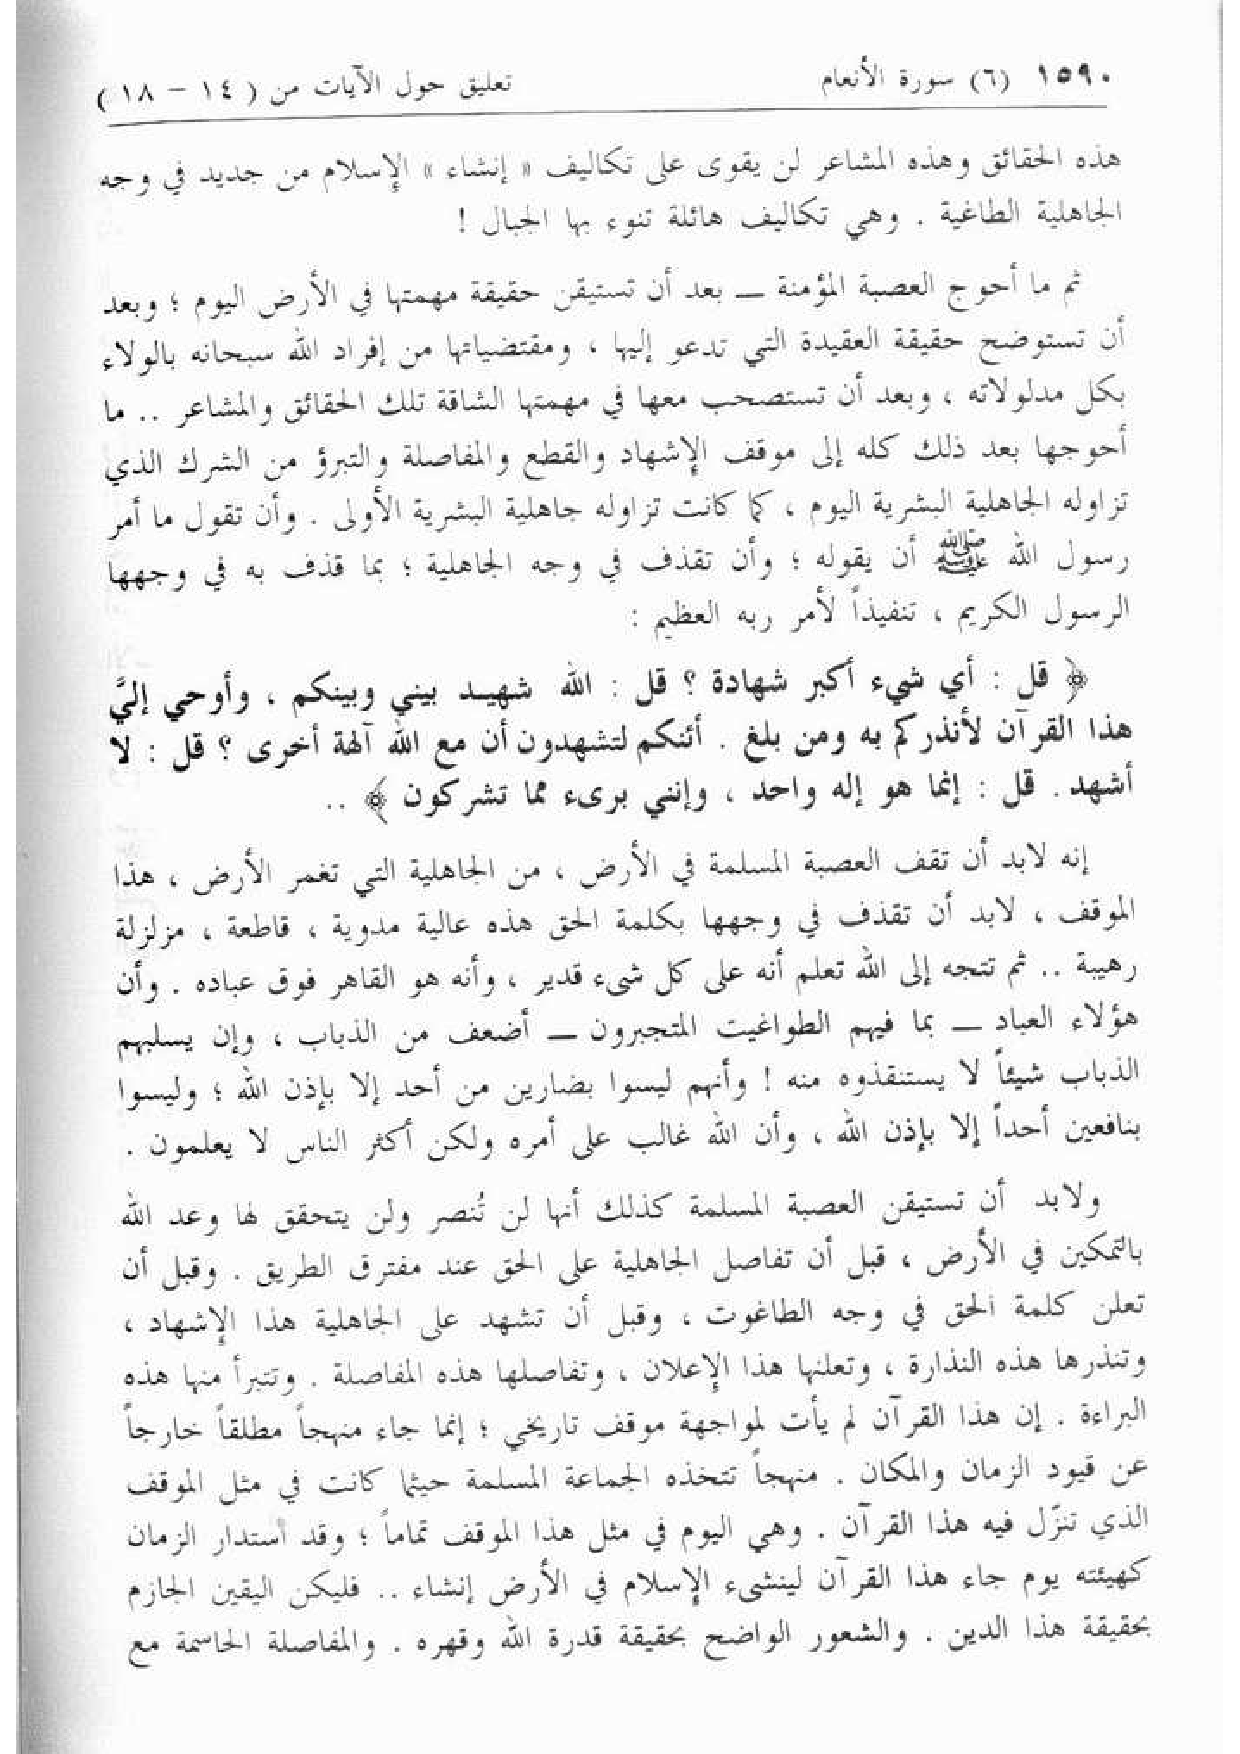 ١٥٩٠ (٦) سورة الأنعام تعليق حول الآيات من ( ١٤ – ١٨ )
هذه الحقائق وهذه المشاعر لن يقوى على تكاليف « إنشاء » الإسلام من جديد في وجه
الجاهلية الطاغية . وهي تكاليف هائلة تنوء بها الجبال !
ثم ما أحوج العصبة المؤمنة ـــ بعد أن تستيقن حقيقة مهمتها في الأرض اليوم ؛ وبعد
أن تستوضح حقيقة العقيدة التي تدعو إليها ، ومقتضياتها من إفراد الله سبحانه بالولاء
بكل مدلولاته ، وبعد أن تستصحب معها في مهمتها الشاقة تلك الحقائق والمشاعر .. ما
أحوجها بعد ذلك كله إلى موقف الإشهاد والقطع والمفاصلة والتبرؤ من الشرك الذي
تزاوله الجاهلية البشرية اليوم ، كما كانت تزاوله جاهلية البشرية الأولى . وأن تقول ما أمر
رسول الله ﷺ أن يقوله ؛ وأن تقذف في وجه الجاهلية ؛ بما قذف به في وجهها
الرسول الكريم ، تنفيذاً لأمر ربه العظيم :
﴿ قل : أي شيء أكبر شهادة ؟ قل : الله شهيد بيني وبينكم ، وأوحي إليَّ
هذا القرآن لأنذركم به ومن بلغ . أئنكم لتشهدون أن مع الله آلهة أخرى ؟ قل : لا
أشهد . قل : إنما هو إله واحد ، وإنني برىء مما تشركون ﴾ ..
إنه لابد أن تقف العصبة المسلمة في الأرض ، من الجاهلية التي تغمر الأرض ، هذا
الموقف ، لابد أن تقذف في وجهها بكلمة الحق هذه عالية مدوية ، قاطعة ، مزلزلة
رهيبة .. ثم تتجه إلى الله تعلم أنه على كل شىء قدير ، وأنه هو القاهر فوق عباده . وأن
هؤلاء العباد ـــ بما فيهم الطواغيت المتجبرون ـــ أضعف من الذباب ، وإن يسلبهم
الذباب شيئاً لا يستنقذوه منه ! وأنهم ليسوا بضارين من أحد إلا بإذن الله ؛ وليسوا
بنافعين أحداً إلا بإذن الله ، وأن الله غالب على أمره ولكن أكثر الناس لا يعلمون .
ولابد أن تستيقن العصبة المسلمة كذلك أنها لن تُنصر ولن يتحقق لها وعد الله
بالتمكين في الأرض ، قبل أن تفاصل الجاهلية على الحق عند مفترق الطريق . وقبل أن
تعلن كلمة الحق في وجه الطاغوت ، وقبل أن تشهد على الجاهلية هذا الإشهاد ،
وتنذرها هذه النذارة ، وتعلنها هذا الإعلان ، وتفاصلها هذه المفاصلة . وتتبرأ منها هذه
البراءة . إن هذا القرآن لم يأت لمواجهة موقف تاريخي ؛ إنما جاء منهجاً مطلقاً خارجاً
عن قيود الزمان والمكان . منهجاً تتخذه الجماعة المسلمة حيثما كانت في مثل الموقف
الذي تنزّل فيه هذا القرآن . وهي اليوم في مثل هذا الموقف تماماً ؛ وقد استدار الزمان
كهيئته يوم جاء هذا القرآن لينشىء الإسلام في الأرض إنشاء .. فليكن اليقين الجازم
بحقيقة هذا الدين . والشعور الواضح بحقيقة قدرة الله وقهره . والمفاصلة الحاسمة مع